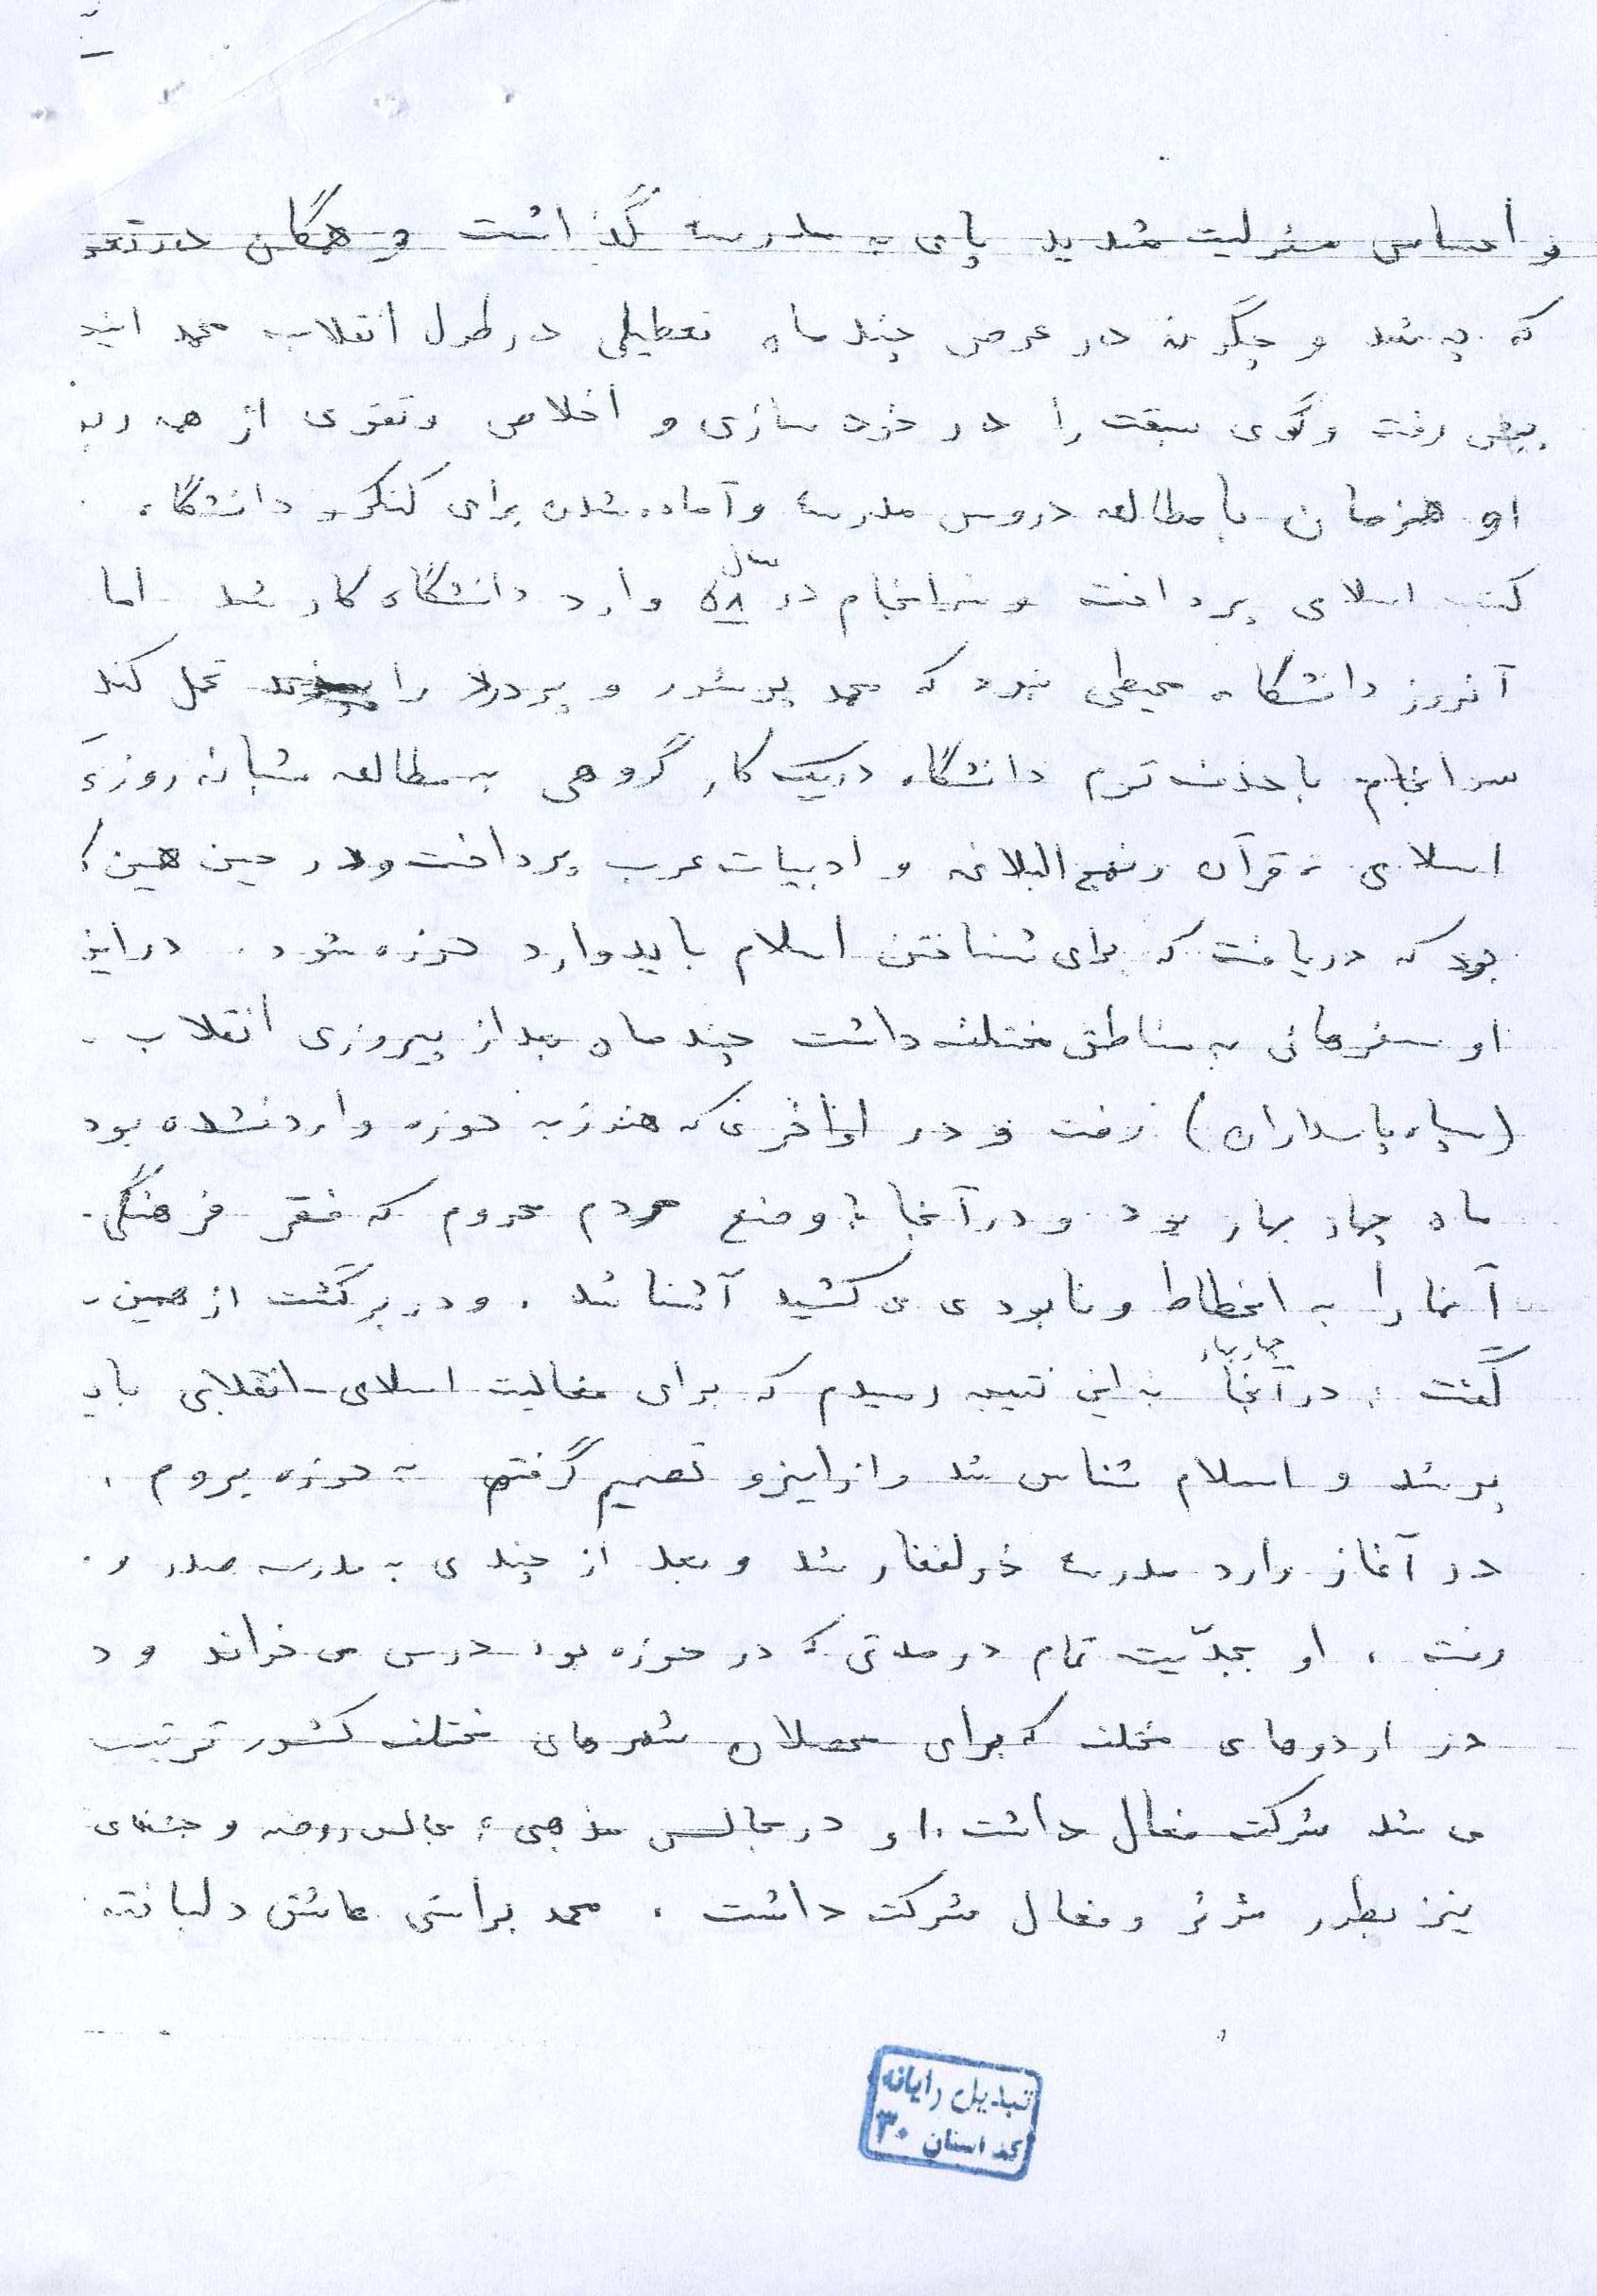 و احساس مسئولیت شدید پای به مدرسه گذاشت و همگان در تعجب
که چه شد و چگونه در عرض چند ماه تعطیلی در طول انقلاب محمد
پیش رفت و گوی سبقت را در خود سازی و اخلاص و تقوی از همه
او همزمان با مطالعه دروس مدرسه و آماده شدن برای کنکور دانشگاه
کتب اسلامی پرداخت و سرانجام در سال ۵۸ وارد دانشگاه کار شد اما
آنروز دانشگاه محیطی نبود که محمد پرشور و پردرد را تحمل کند
سرانجام با حذف ترم دانشگاه در یک کار گروهی به مطالعه شبانه روزی
اسلامی قرآن و نهج البلاغه و ادبیات عرب پرداخت و در حین همین
بود که دریافت که برای شناختن اسلام باید وارد حوزه شود . در این
او سفرهائی به مناطق مختلف داشت چند ماه بعد از پیروزی انقلاب
(سپاه پاسداران) رفت و در اواخری که هنوز به حوزه وارد نشده بود
ماه چابهار بود و در آنجا با وضع مردم محروم که فقر فرهنگی
آنها را به انحطاط و نابودی می کشید آشنا شد . و در برگشت از همین
گفت : در آنجا چابهار به این نتیجه رسیدم که برای فعالیت اسلامی - انقلابی باید
پر شد و اسلام شناس شد و از اینرو تصمیم گرفتم به حوزه بروم .
در آغاز وارد مدرسه ذولفقار شد و بعد از چندی به مدرسه صدر و
رفت . او بجدّیت تمام در مدتی که در حوزه بود درس می خواند و
در اردوهای مختلف که برای محصلان شهرهای مختلف کشور ترتیب
می شد شرکت فعال داشت . او در مجالس مذهبی ، مجالس روضه و جشنهای
نیز بطور مؤثر و فعال شرکت داشت . محمد براستی عاشق دلباخته
تبدیل رایانه
کد استان ۳۰